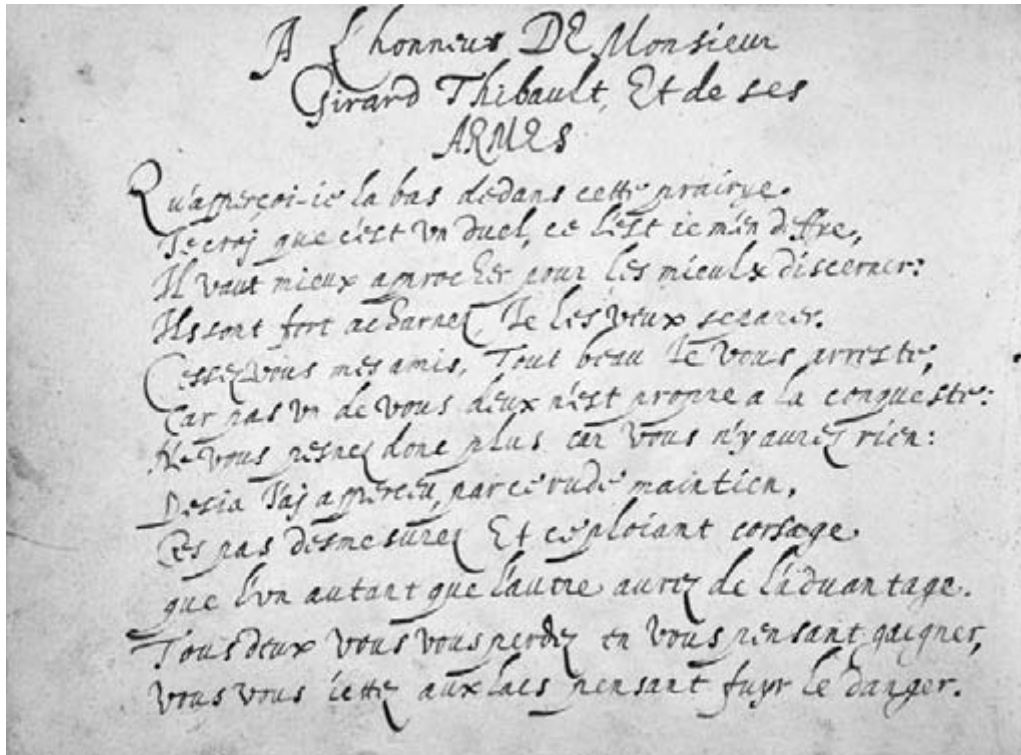 A L'honneur DE Monsieur
Girard Thibault, Et de ses
ARMES
Qu'apperçoi-ie la bas dedans cette prairye.
Je croj que c'est vn duel, ce l'est ie m'en deffie,
Il vaut mieux approcher pour les mieulx discerner:
Ils sont fort acharnez, Je les veux separer.
Cessez vous mes amis, Tout beau Je vous arreste,
Car pas vn de vous deux n'est propre a la conqueste:
Ne vous penez donc plus car vous n'y aurez rien:
Desia J'aj apperceu, par ce rude maintien,
Ces pas desmesurez Et ce ploiant corsage
que l'vn autant que l'autre aurez de l'aduantage.
Tous deux vous vous perdez en vous pensant gaigner,
vous vous iettez aux lacs pensant fuyr le danger.